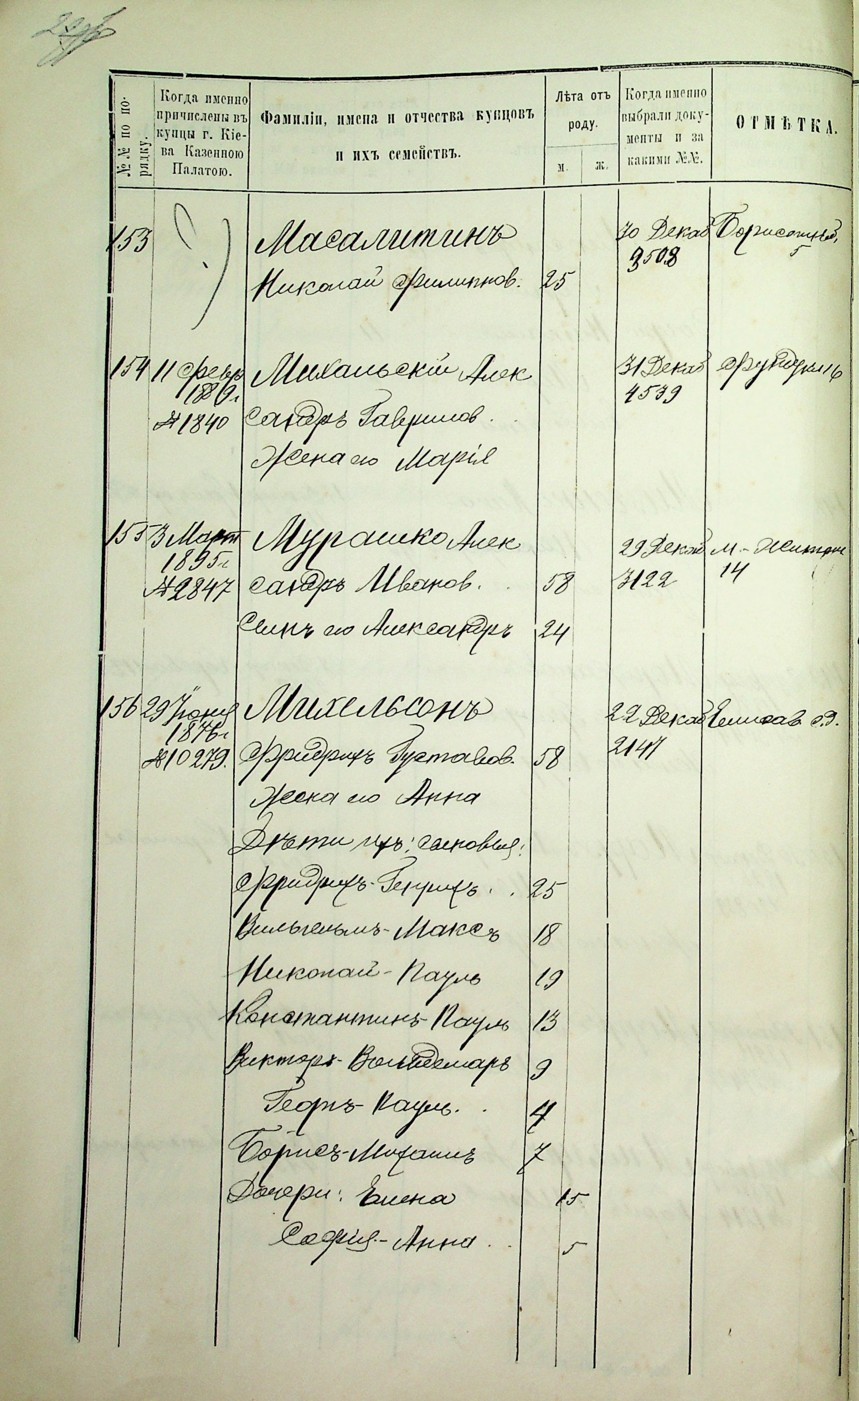 №№ по порядку.
Когда именно причислены въ купцы г. Кіева Казенною Палатою.
Фамиліи, имена и отчества купцовъ и ихъ семействъ.
Лѣта отъ роду.
м.
ж.
Когда именно выбрали документы и за какими №№.
ОТМѢТКА.
153 Масалитинъ 30 Декаб
Николай Филиппов. 25 3508 5
154 11 Февр Михальскій Алек 31 Декаб Фундукл 16
№ 1840 сандръ Гаврилов. 4539
Жена его Марія
155 3 Март Мурашко Алек 29 Декаб М.-Житом
1895 г. 14
№ 2847 сандръ Иванов. 58 3122
Сынъ его Александръ 24
156 29 Іюня Михельсонъ 22 Декаб Елисав с.д.
1876 г.
№ 10279. Фридрихъ Густавов. 58 2147
Жена его Анна
Дѣти ихъ: сыновья:
Фридрихъ-Генрихъ 25
Вильгельмъ-Максъ 18
Николай-Пауль 19
Константинъ-Пауль 13
Викторъ-Вольдемаръ 9
Георгъ-Пауль. 4
Борисъ-Михаилъ 7
Дочери: Елена 15
Софія-Анна 5